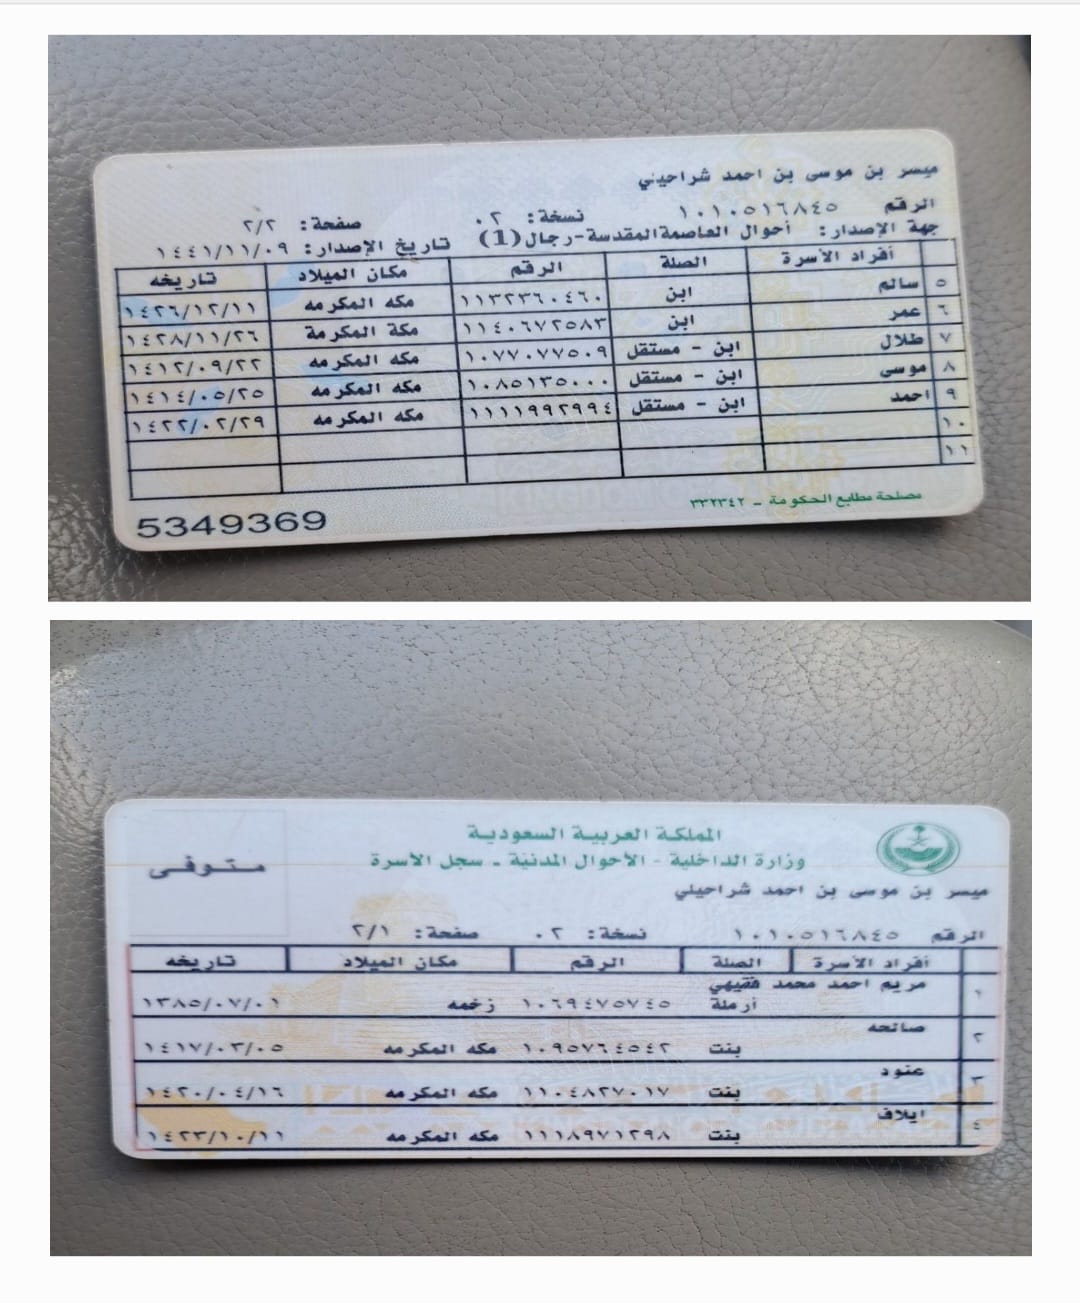 ميسر بن موسى بن احمد شراحيلي
الرقم ١٠١٠٥١٦٨٤٥ نسخة: ٠٢ صفحة: ٢/٢
جهة الإصدار: أحوال العاصمة المقدسة-رجال(1) تاريخ الإصدار: ١٤٤١/١١/٠٩
أفراد الأسرة الصلة الرقم مكان الميلاد تاريخه
٥ سالم ابن ١١٣٢٣٦٠٤٦٠ مكه المكرمه ١٤٢٦/١٢/١١
٦ عمر ابن ١١٤٠٦٧٢٥٨٣ مكة المكرمة ١٤٢٨/١١/٢٦
٧ طلال ابن - مستقل ١٠٧٧٠٧٧٥٠٩ مكه المكرمه ١٤١٢/٠٩/٢٢
٨ موسى ابن - مستقل ١٠٨٥١٣٥٠٠٠ مكه المكرمه ١٤١٤/٠٥/٢٥
٩ احمد ابن - مستقل ١١١١٩٩٢٩٩٤ مكه المكرمه ١٤٢٢/٠٢/٢٩
١٠
١١
مصلحة مطابع الحكومة - ٣٣٢٣٤٢
5349369
المملكة العربية السعودية
وزارة الداخلية - الأحوال المدنية - سجل الأسرة
متوفى
ميسر بن موسى بن احمد شراحيلي
الرقم ١٠١٠٥١٦٨٤٥ نسخة: ٠٢ صفحة: ٢/١
أفراد الأسرة الصلة الرقم مكان الميلاد تاريخه
١ مريم احمد محمد فقيهي
أرملة ١٠٦٩٤٧٥٧٤٥ زخمه ١٣٨٥/٠٧/٠١
٢ صالحه
بنت ١٠٩٥٧٦٤٥٤٢ مكه المكرمه ١٤١٧/٠٣/٠٥
٣ عنود
بنت ١١٠٤٨٢٧٠١٧ مكه المكرمه ١٤٢٠/٠٤/١٦
٤ ايلاف
بنت ١١١٨٩٧١٢٩٨ مكه المكرمه ١٤٢٣/١٠/١١